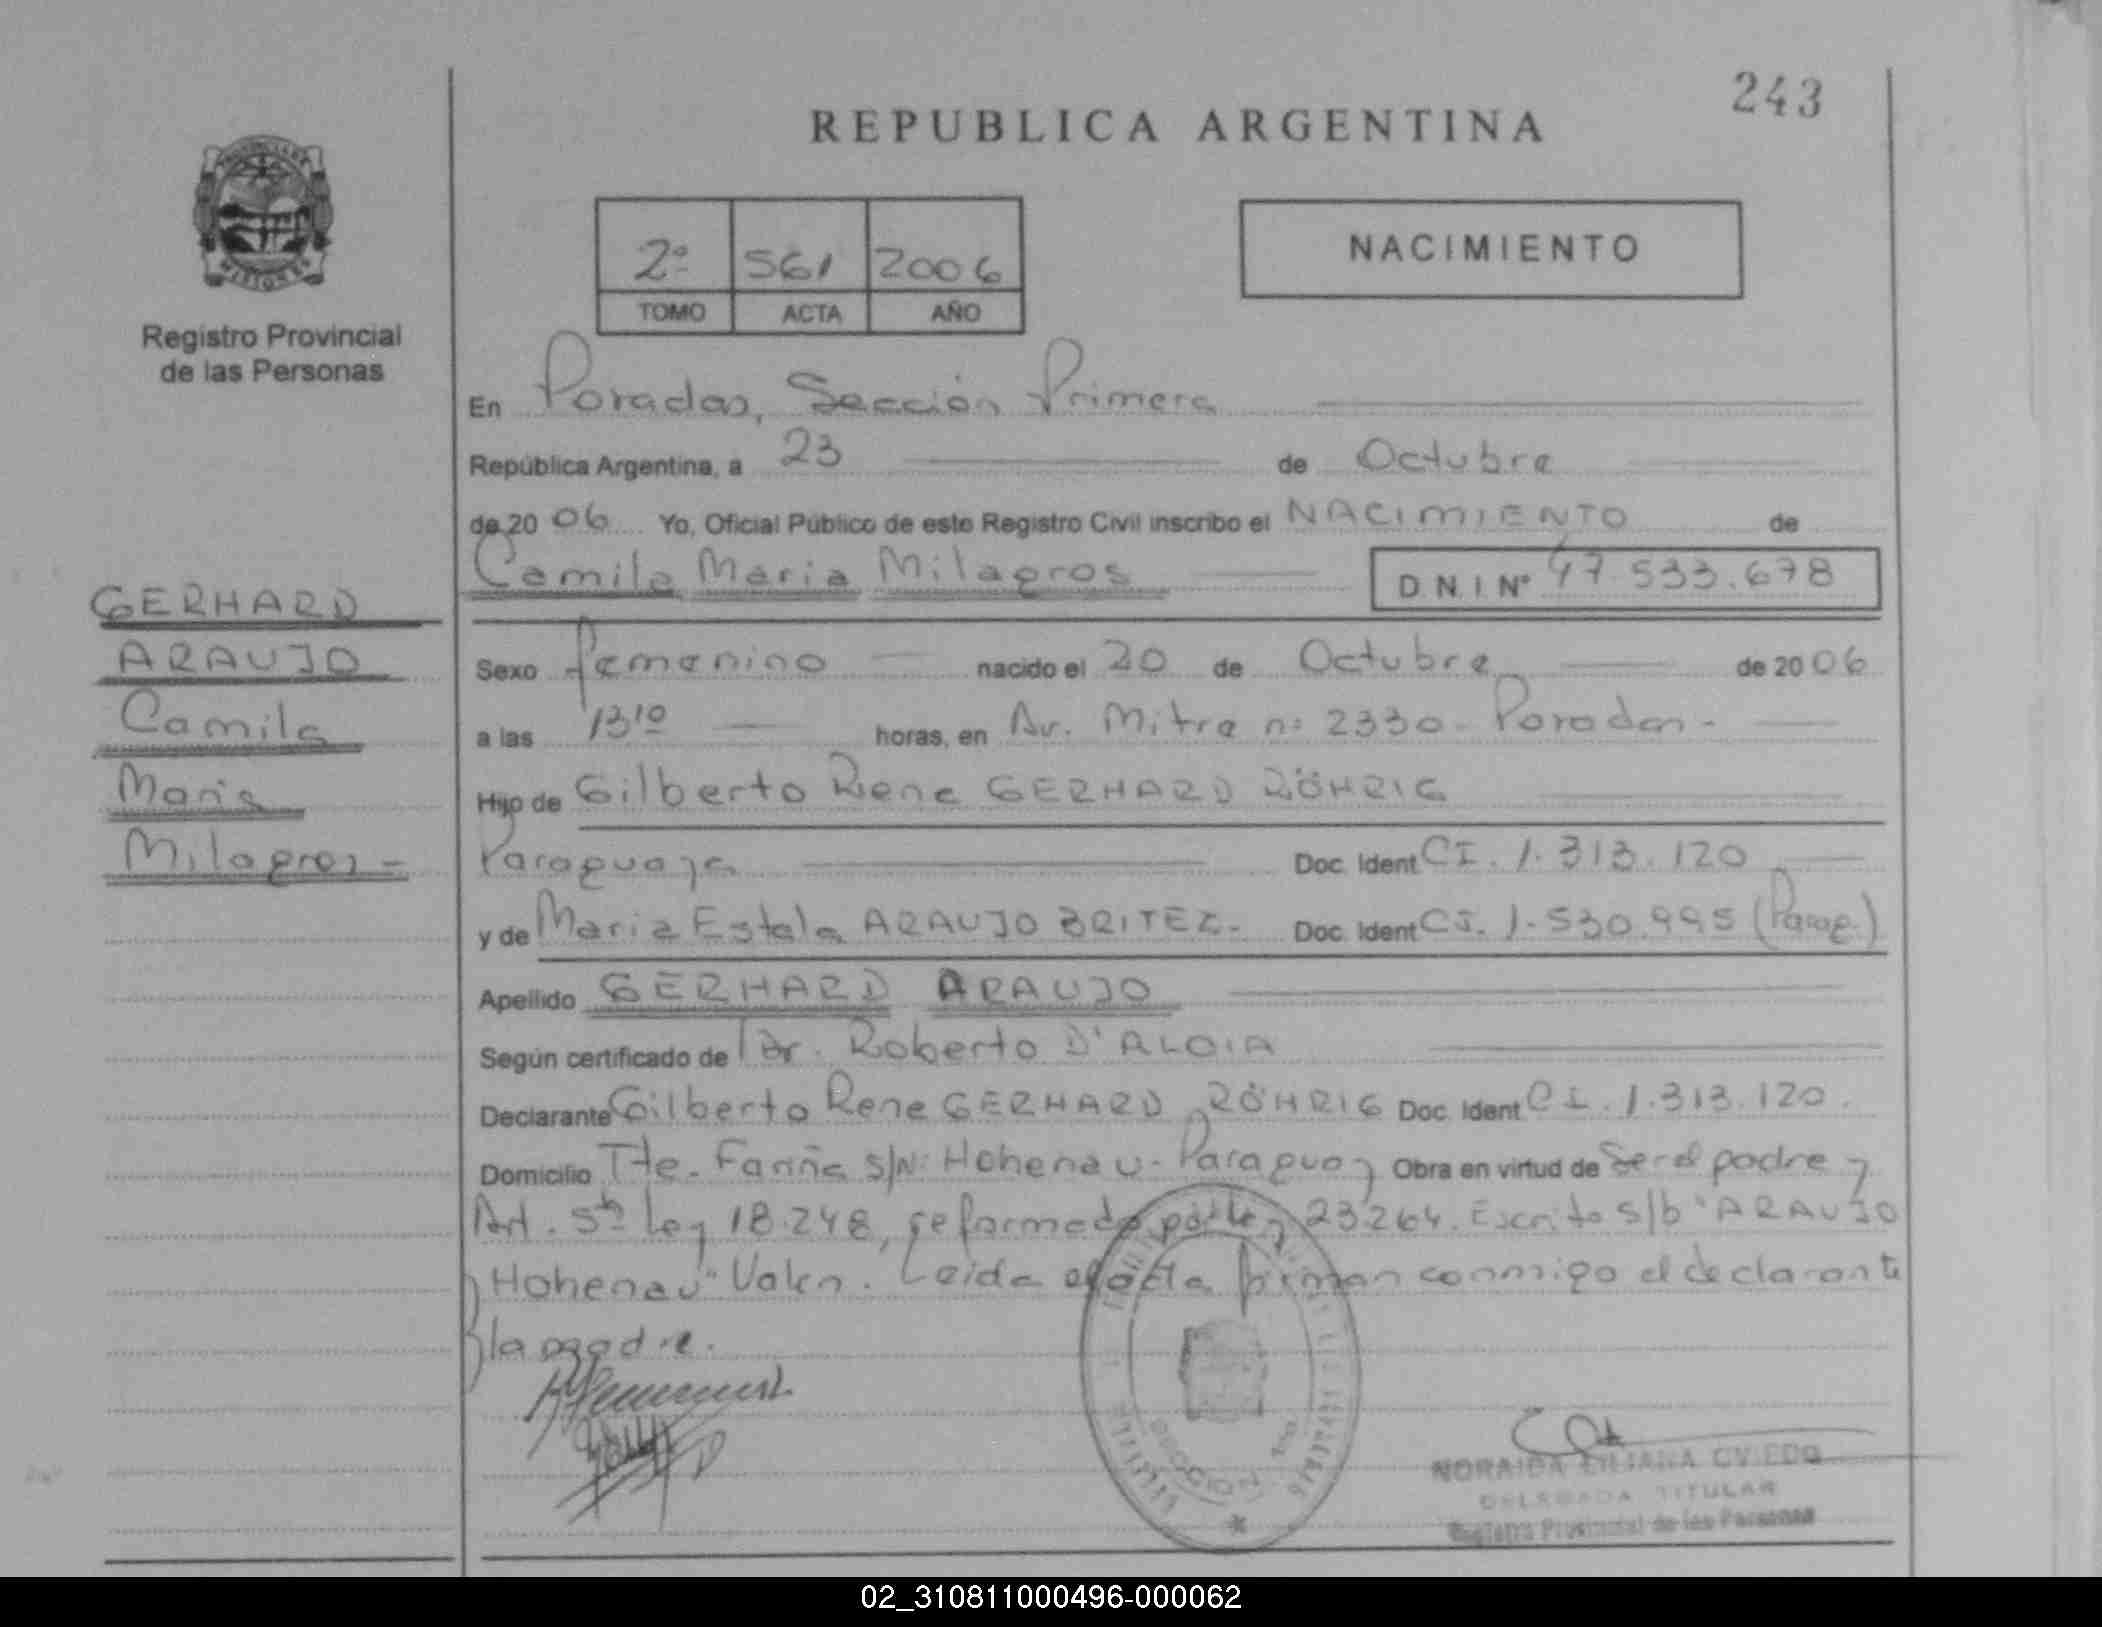 243
REPUBLICA ARGENTINA
2º 561 2006
TOMO ACTA AÑO
NACIMIENTO
MISIONES
Registro Provincial
de las Personas
En Posadas, Sección Primera
República Argentina, a 23 de Octubre
de 20 06 Yo, Oficial Público de este Registro Civil inscribo el NACIMIENTO de
Camila Maria Milagros D.N.I. Nº 47.533.678
GERHARD
ARAUJO
Camila
Maria
Milagros-
Sexo femenino nacido el 20 de Octubre de 20 06
a las 13 10 horas, en Av. Mitre nº 2330 - Posadas -
Hijo de Gilberto Rene GERHARD RÖHRIG
Paraguaya Doc. Ident CI. 1.313.120
y de Maria Estela ARAUJO BRITEZ- Doc. Ident CI. 1.530.995 (Parag.)
Apellido GERHARD ARAUJO
Según certificado de Dr. Roberto D'ALOIA
Declarante Gilberto Rene GERHARD RÖHRIG Doc. Ident CI. 1.313.120.
Domicilio Tte. Fariña S/Nº Hohenau - Paraguay Obra en virtud de Ser el padre y
Art. 5to ley 18.248, reformado por ley 23.264. Escrito s/b "ARAUJO
Hohenau" Valen. Leida el acta firman conmigo el declarante
y la madre.
SECCION 1ra
NORAIDA LILIANA OVIEDO
DELEGADA TITULAR
Registro Provincial de las Personas
02_310811000496-000062